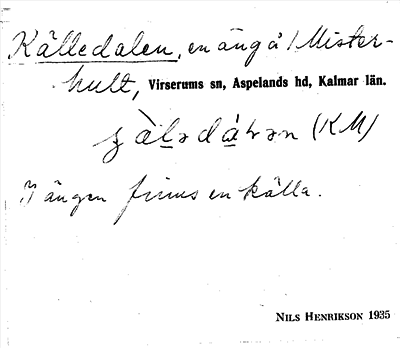 Källedalen, en äng å Mister-
hult, Virserums sn, Aspelands hd, Kalmar län.
(KM)
I ängen finns en källa.
NILS HENRIKSON 1935